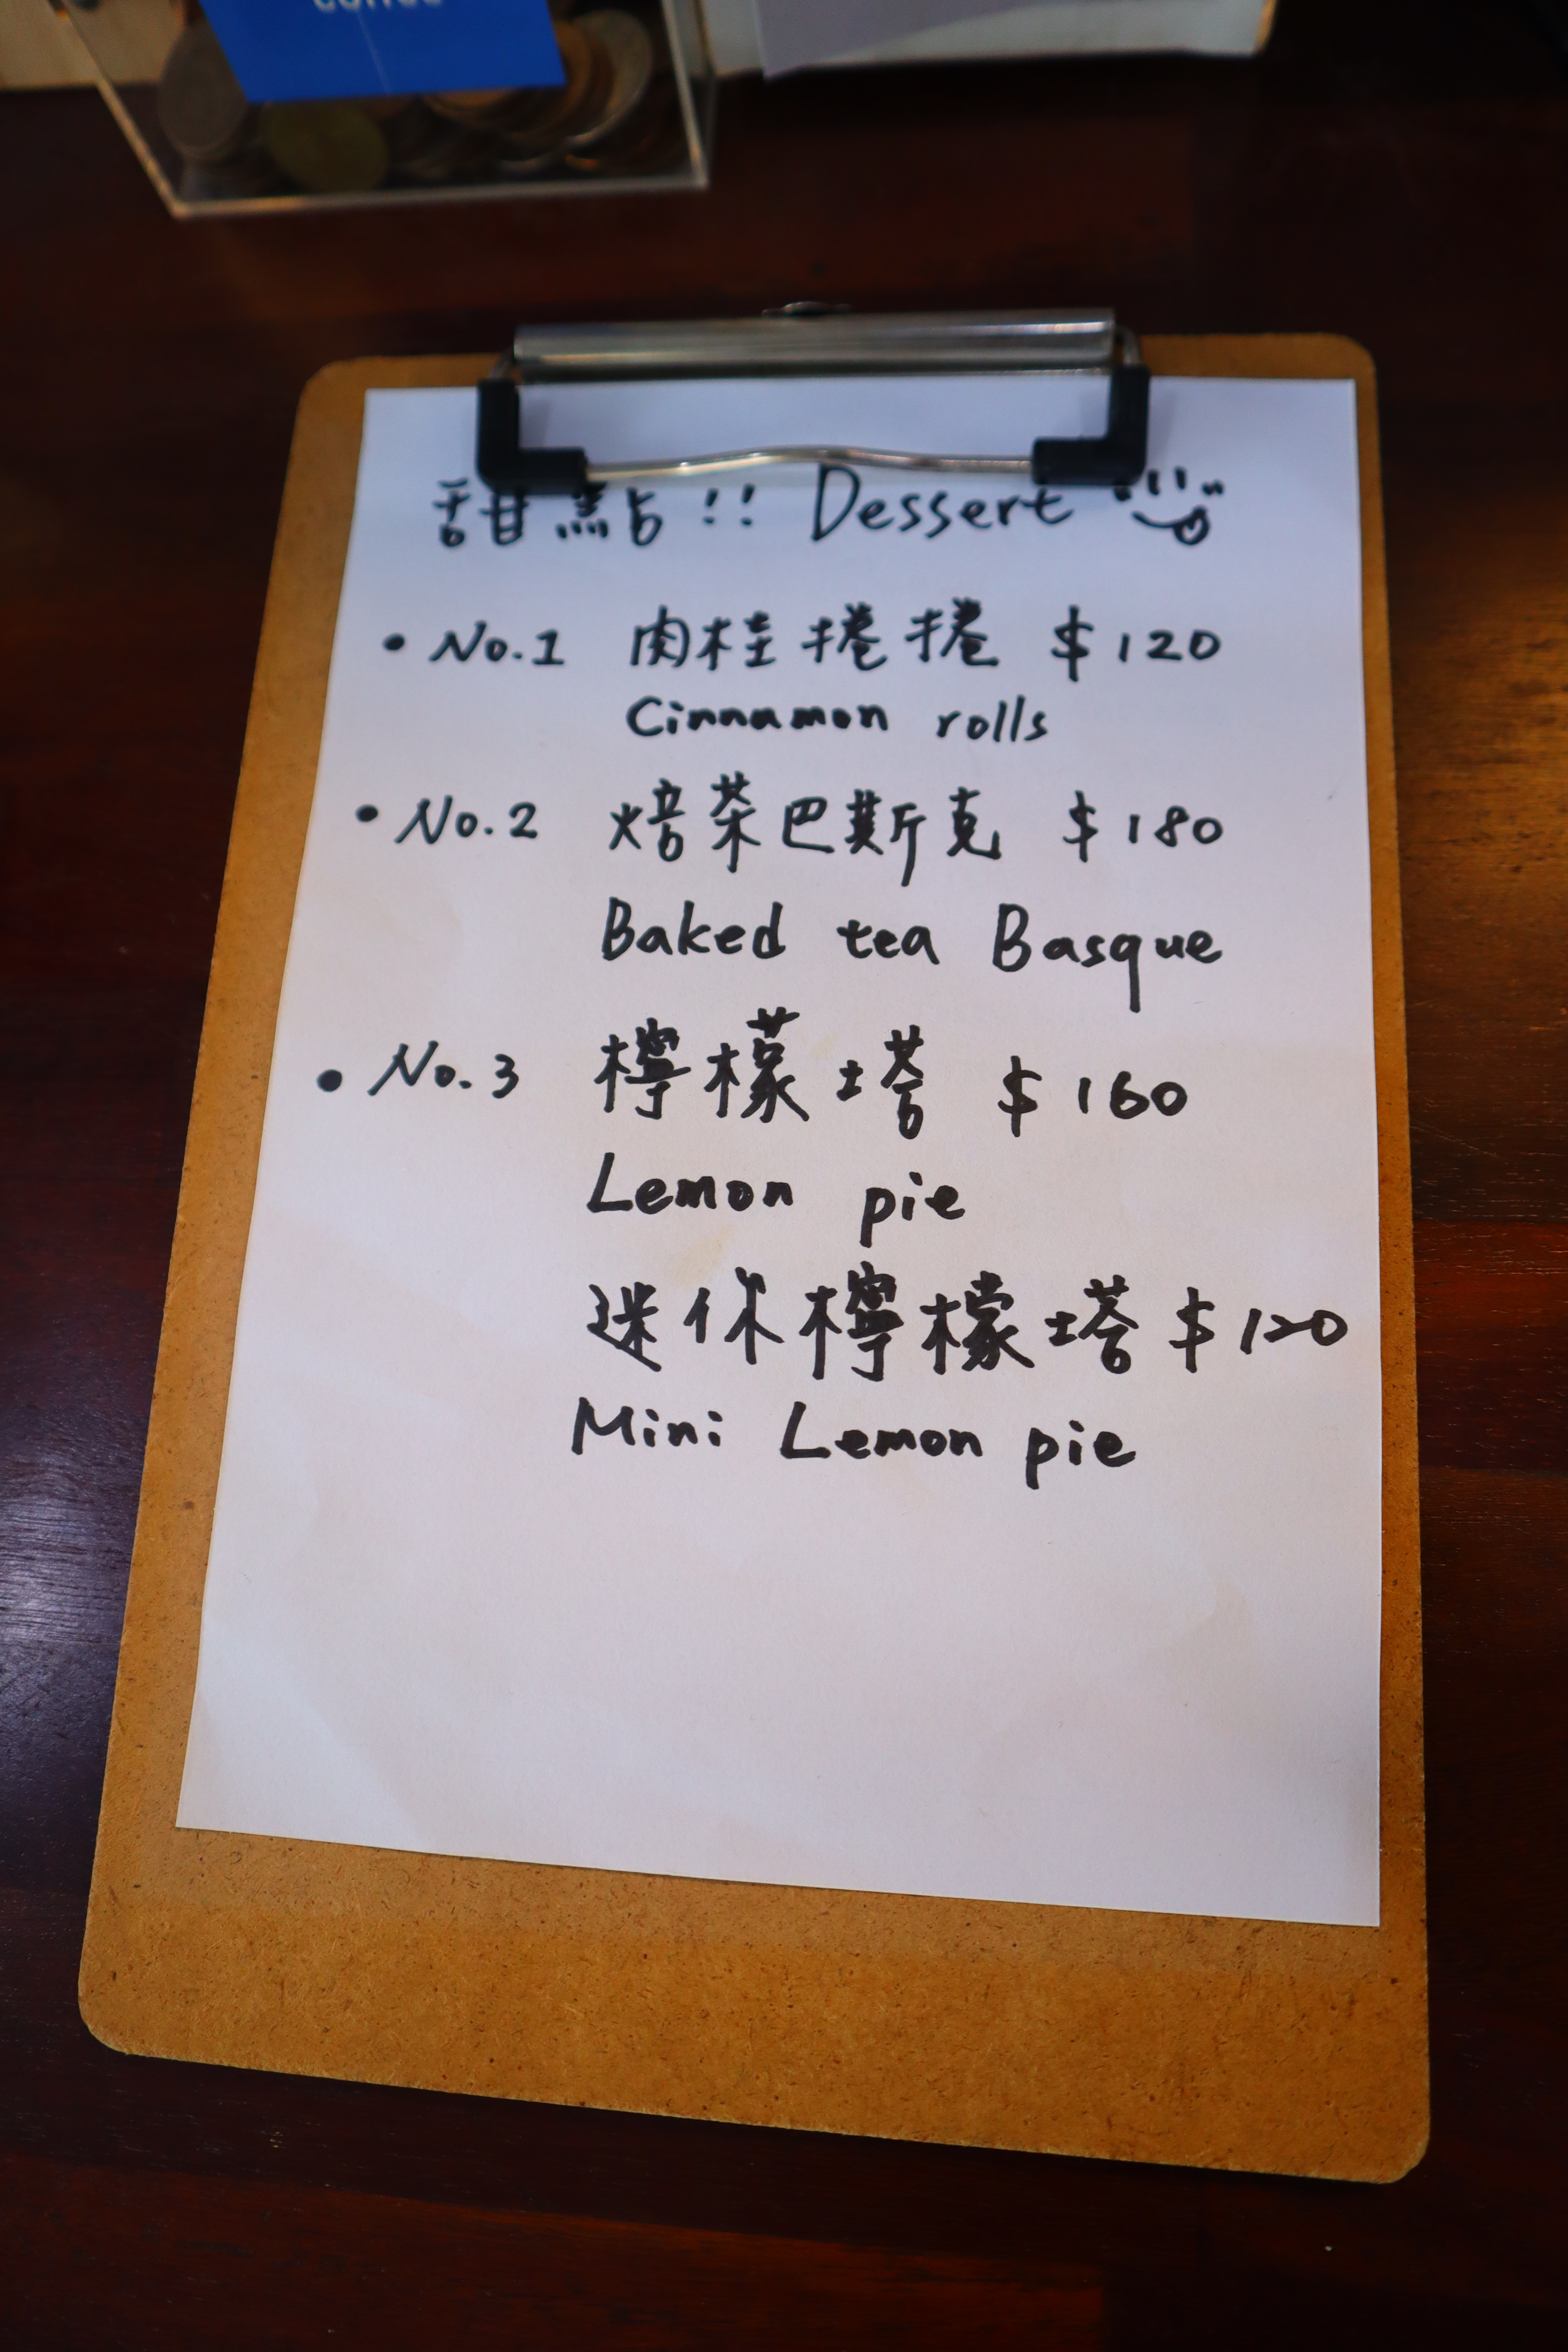 coffee
甜點!! Dessert
• No.1 肉桂捲捲 $120
Cinnamon rolls
• No.2 焙茶巴斯克 $180
Baked tea Basque
• No.3 檸檬塔 $160
Lemon pie
迷你檸檬塔 $120
Mini Lemon pie